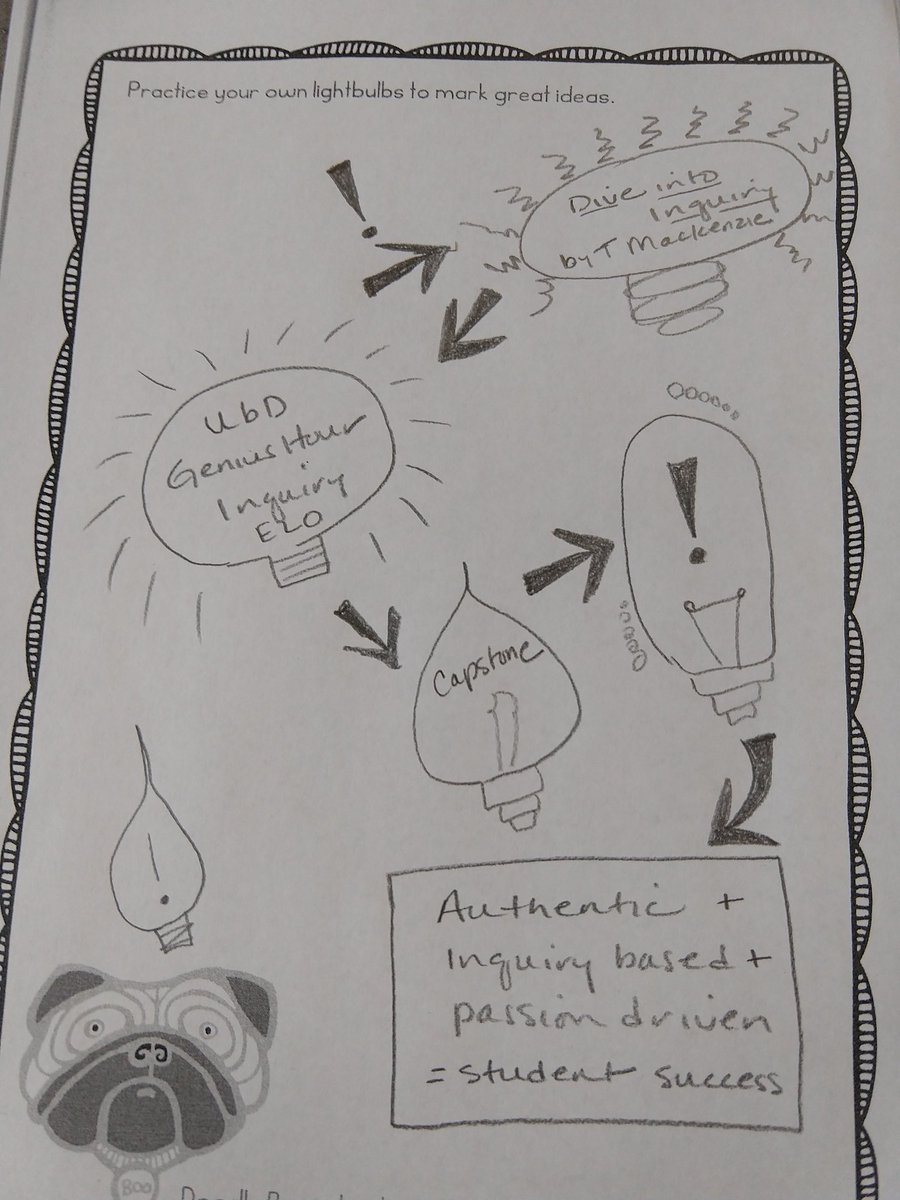 Practice your own lightbulbs to mark great ideas.
!
Dive into
Inquiry
by T Mackenzie
UbD
Genius Hour
Inquiry
ELO
Capstone
!
!
Authentic +
Inquiry based +
passion driven
= student success
BOO